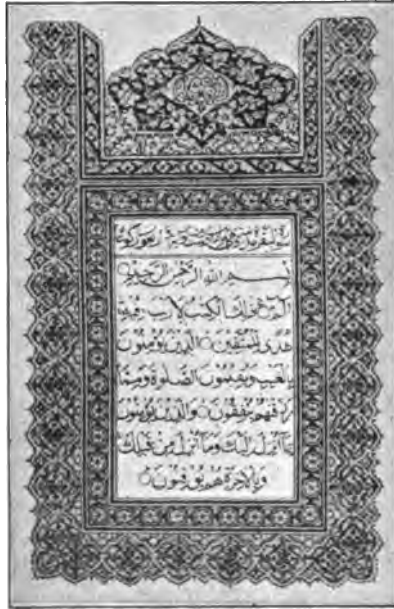 بِسْمِ اللّٰهِ الرَّحْمٰنِ الرَّحِيْمِ ○
الٓمّٓ ذٰلِكَ الْكِتٰبُ لَا رَيْبَ فِيْهِ
هُدًى لِّلْمُتَّقِيْنَ ○ الَّذِيْنَ يُؤْمِنُوْنَ
بِالْغَيْبِ وَيُقِيْمُوْنَ الصَّلٰوةَ وَمِمَّا
رَزَقْنٰهُمْ يُنْفِقُوْنَ ○ وَالَّذِيْنَ يُؤْمِنُوْنَ
بِمَآ اُنْزِلَ اِلَيْكَ وَمَآ اُنْزِلَ مِنْ قَبْلِكَ
وَبِالْاٰخِرَةِ هُمْ يُوْقِنُوْنَ ○